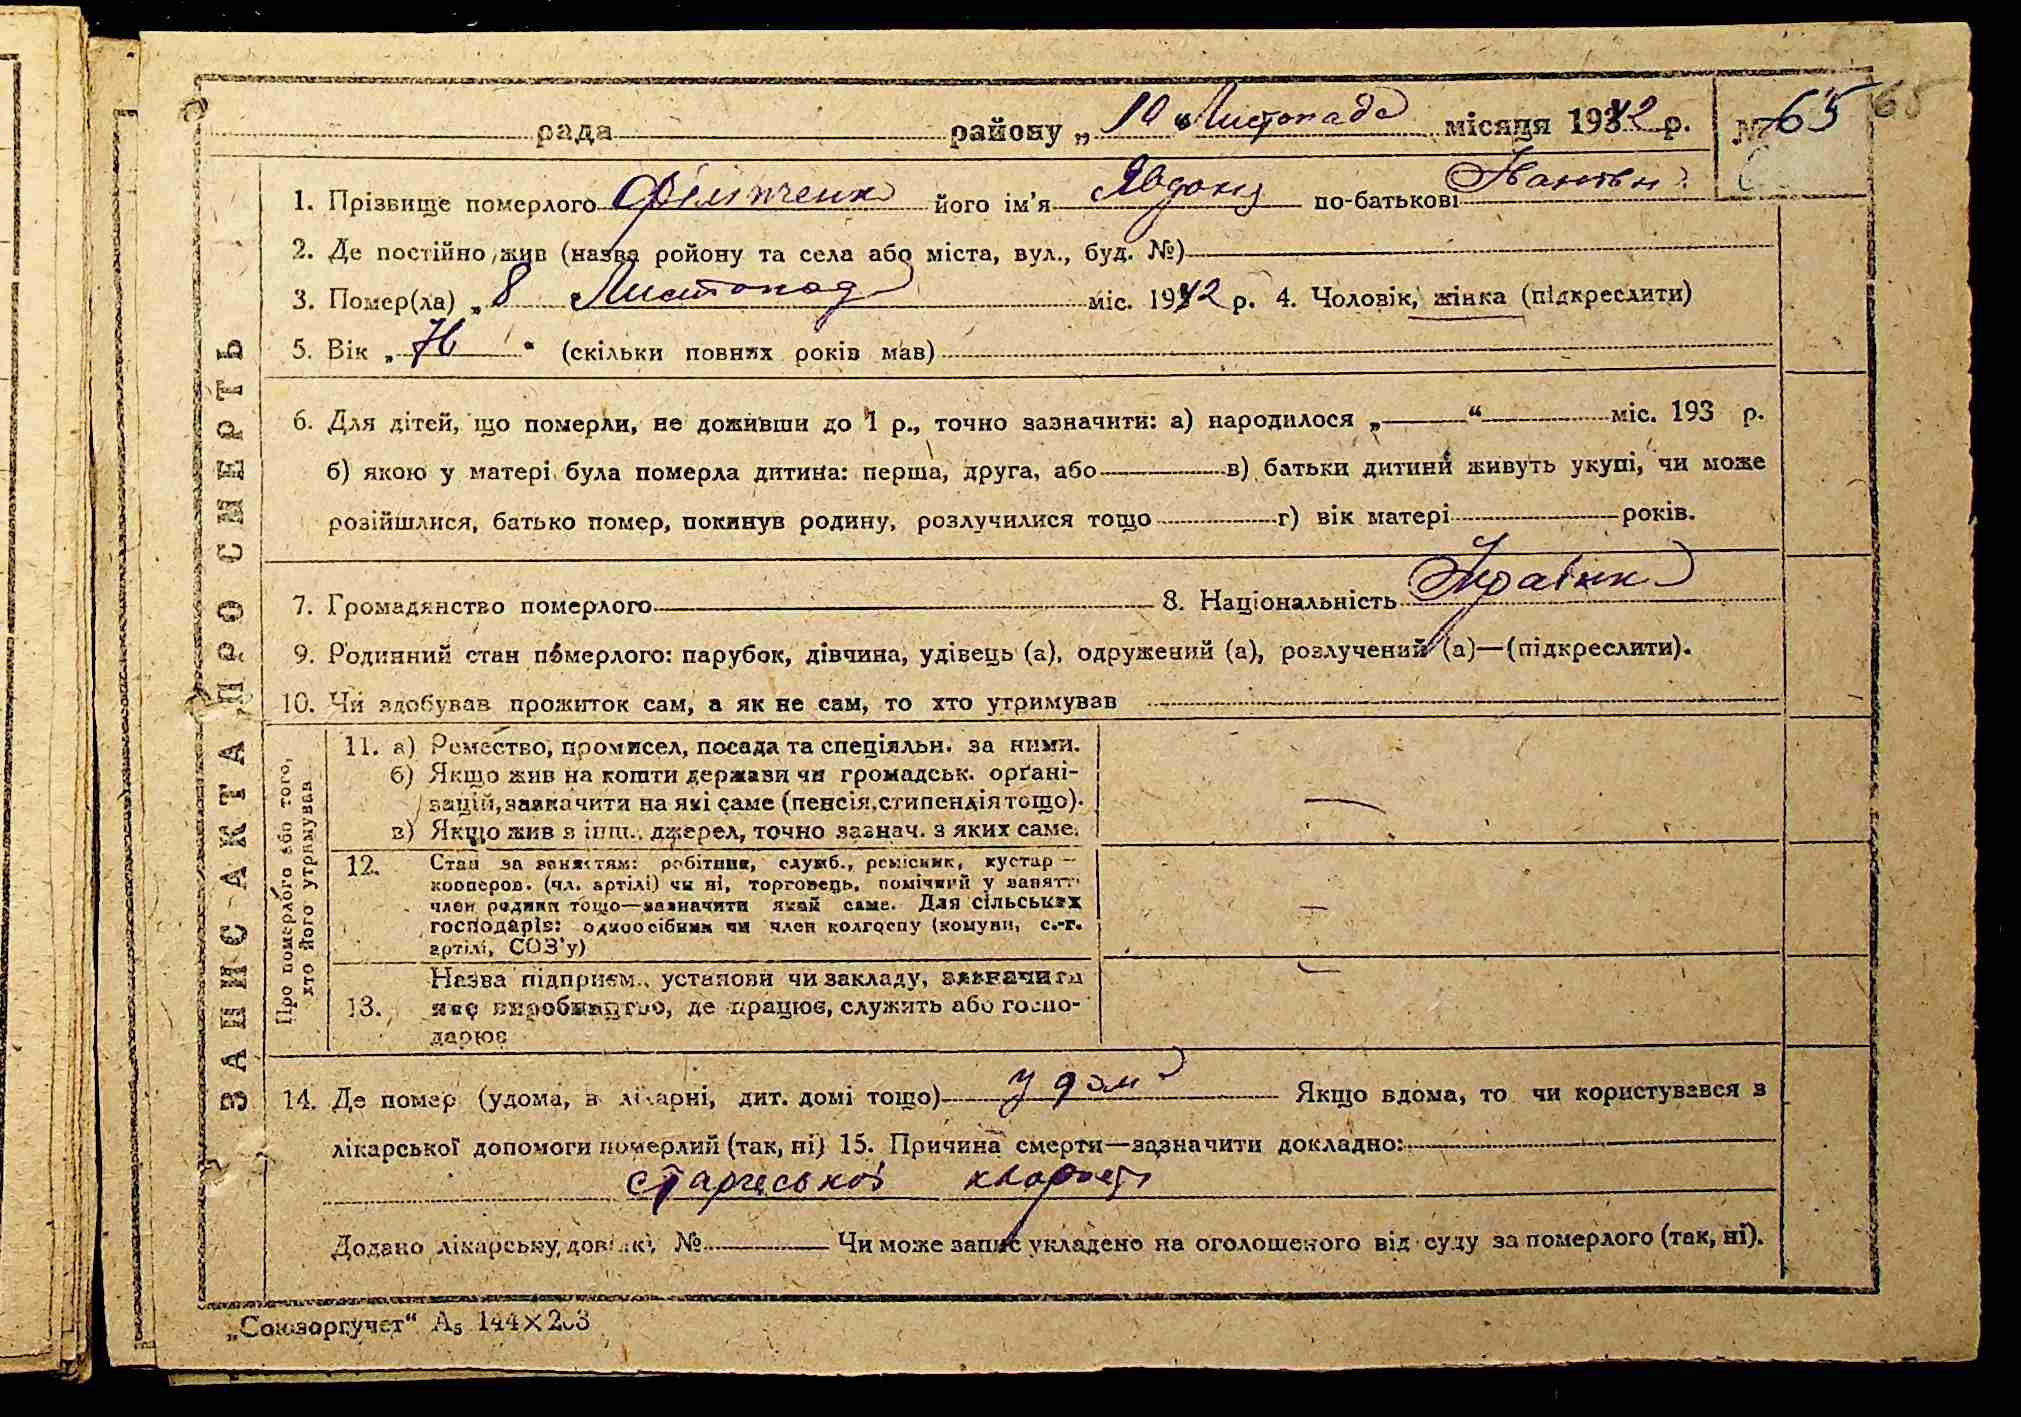 рада району „10“ Листопада місяця 1942 р. № 65 65
ЗАПИС АКТА ПРО СМЕРТЬ
1. Прізвище померлого його ім'я Явдоха по-батькові
2. Де постійно жив (назва ройону та села або міста, вул., буд. №)
3. Помер(ла) „8 Листопад міс. 1942 р. 4. Чоловік, жінка (підкреслити)
5. Вік „ “ (скільки повних років мав)
6. Для дітей, що померли, не доживши до 1 р., точно зазначити: а) народилося „ “ міс. 193 р.
б) якою у матері була померла дитина: перша, друга, або в) батьки дитини живуть укупі, чи може
розійшлися, батько помер, покинув родину, розлучилися тощо г) вік матері років.
7. Громадянство померлого 8. Національність Україн
9. Родинний стан померлого: парубок, дівчина, удівець (а), одружений (а), розлучений (а)—(підкреслити).
10. Чи здобував прожиток сам, а як не сам, то хто утримував
Про померлого або того, хто його утримував
11. а) Ремество, промисел, посада та спеціяльн. за ними.
б) Якщо жив на кошти держави чи громадськ. орґані-
зацій, зазначити на які саме (пенсія, стипендія тощо).
в) Якщо жив з інш. джерел, точно зазнач. з яких саме.
12. Стан за заняттям: робітник, служб., ремісник, кустар —
кооперов. (чл. артілі) чи ні, торговець, помічний у занятті
член родини тощо—зазначити який саме. Для сільських
господарів: одноосібник чи член колгоспу (комуни, с.-г.
артілі, СОЗ'у)
Назва підприєм., установи чи закладу, зазначити
13. яке виробництво, де працює, служить або госпо-
дарює
14. Де помер (удома, в лікарні, дит. домі тощо) у дома Якщо вдома, то чи користувався з
лікарської допомоги померлий (так, ні) 15. Причина смерти—зазначити докладно:
старческої
Додано лікарську довідку № Чи може запис укладено на оголошеного від суду за померлого (так, ні).
„Союзоргучет“ А₅ 144×203